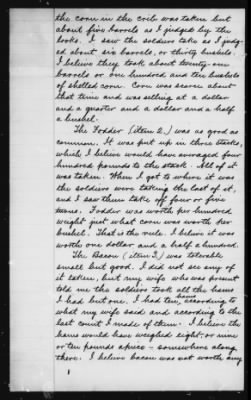 the corn in the crib was taken but
about five barrels as I judged by the
looks. I saw the soldiers take as I judg-
ed about six barrels, or thirty bushels.
I believe they took about twenty-one
barrels or one hundred and ten bushels
of shelled corn. Corn was scarce about
that time and was selling at a dollar
and a quarter and a dollar and a half
a bushel.
The Fodder (item 2.) was as good as
common. It was put up in three stacks,
which I believe would have averaged four
hundred pounds to the stack. All of it
was taken. When I got to where it was
the soldiers were taking the last of it,
and I saw them take off four or five
turns. Fodder was worth per hundred
weight just what corn was worth per
bushel. That is the rule. I believe it was
worth one dollar and a half a hundred.
The Bacon (item 3.) was tolerable
small but good. I did not see any of
it taken, but my wife who was present
told me the soldiers took all the hams
I had but one. I had ten hams, according to
what my wife said and according to the
last count I made of them. I believe the
hams would have weighed eight, or nine
or ten pounds apiece - somewhere along
there. I believe bacon was not worth any